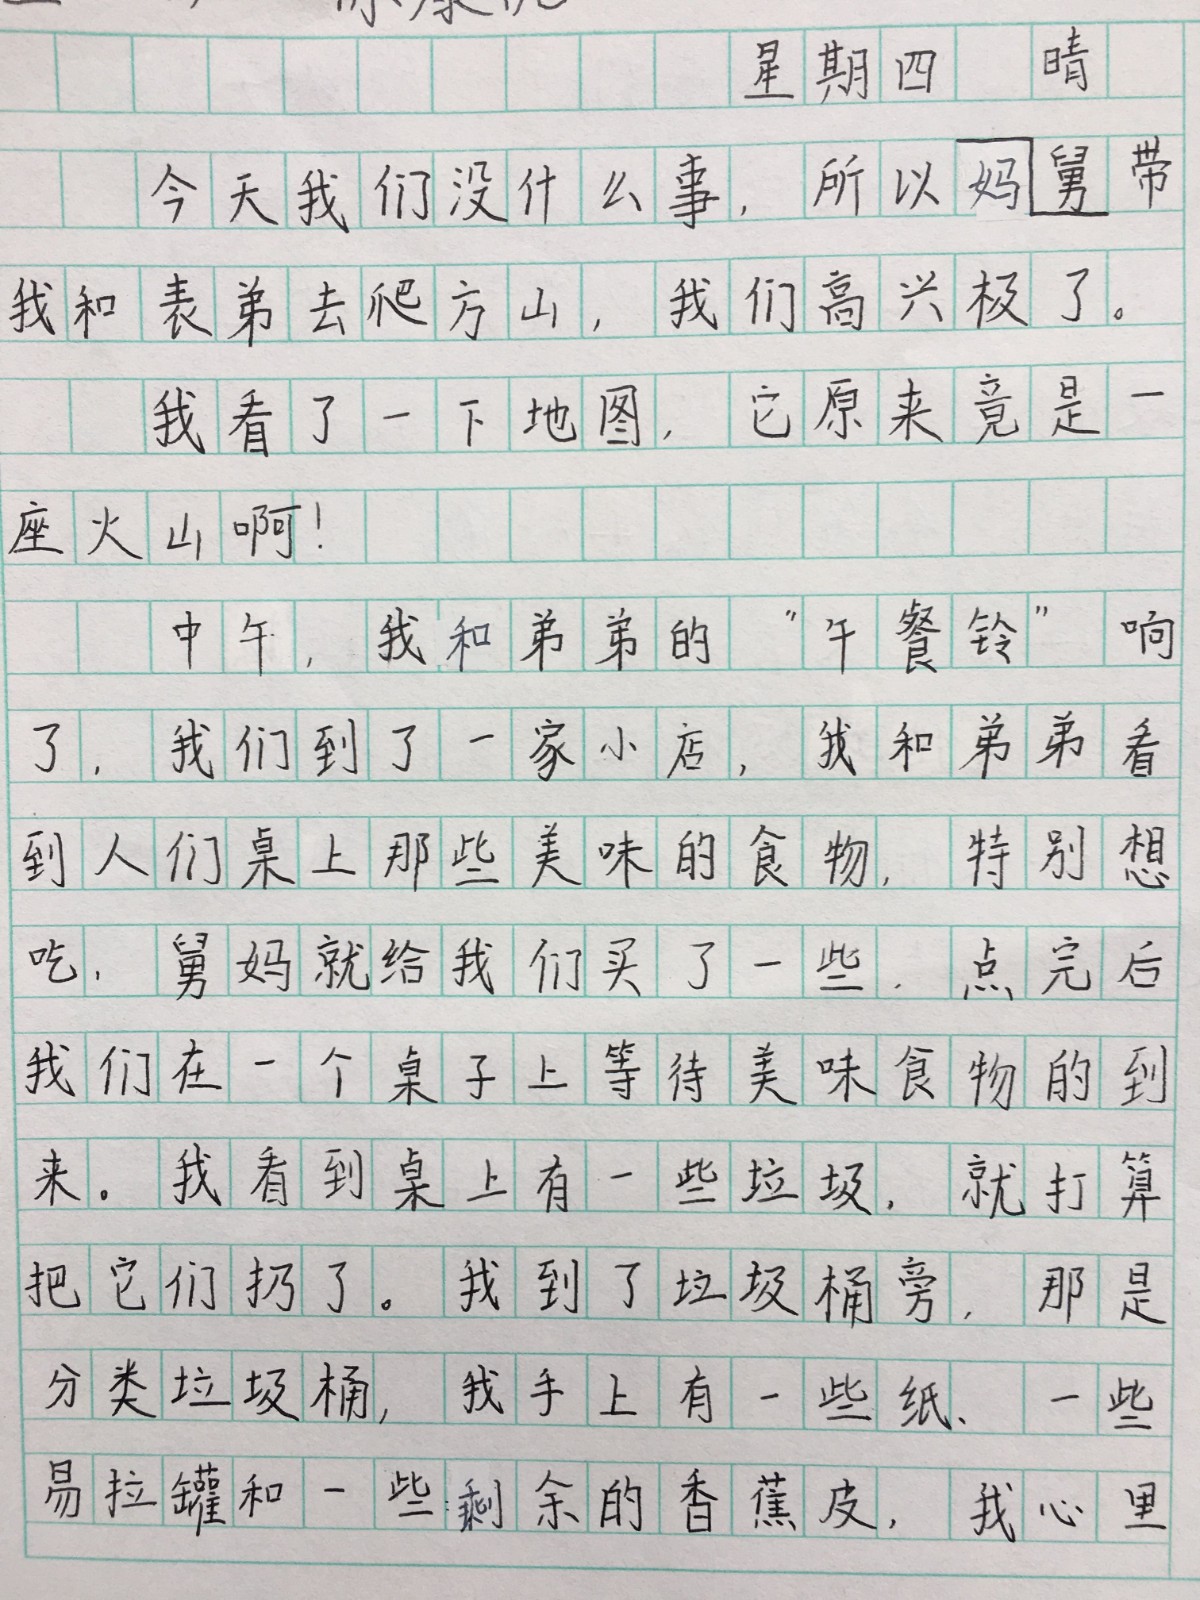 星期四 晴
今天我们没什么事，所以妈舅带
我和表弟去爬方山，我们高兴极了。
我看了一下地图，它原来竟是一
座火山啊！
中午，我和弟弟的“午餐铃”响
了，我们到了一家小店，我和弟弟看
到人们桌上那些美味的食物，特别想
吃，舅妈就给我们买了一些，点完后
我们在一个桌子上等待美味食物的到
来。我看到桌上有一些垃圾，就打算
把它们扔了。我到了垃圾桶旁，那是
分类垃圾桶，我手上有一些纸、一些
易拉罐和一些剩余的香蕉皮，我心里